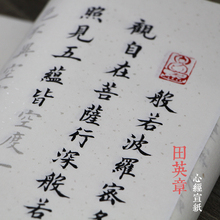 般若波羅密多
觀自在菩薩行深般若
照見五蘊皆空度一
田英章
心經宣紙